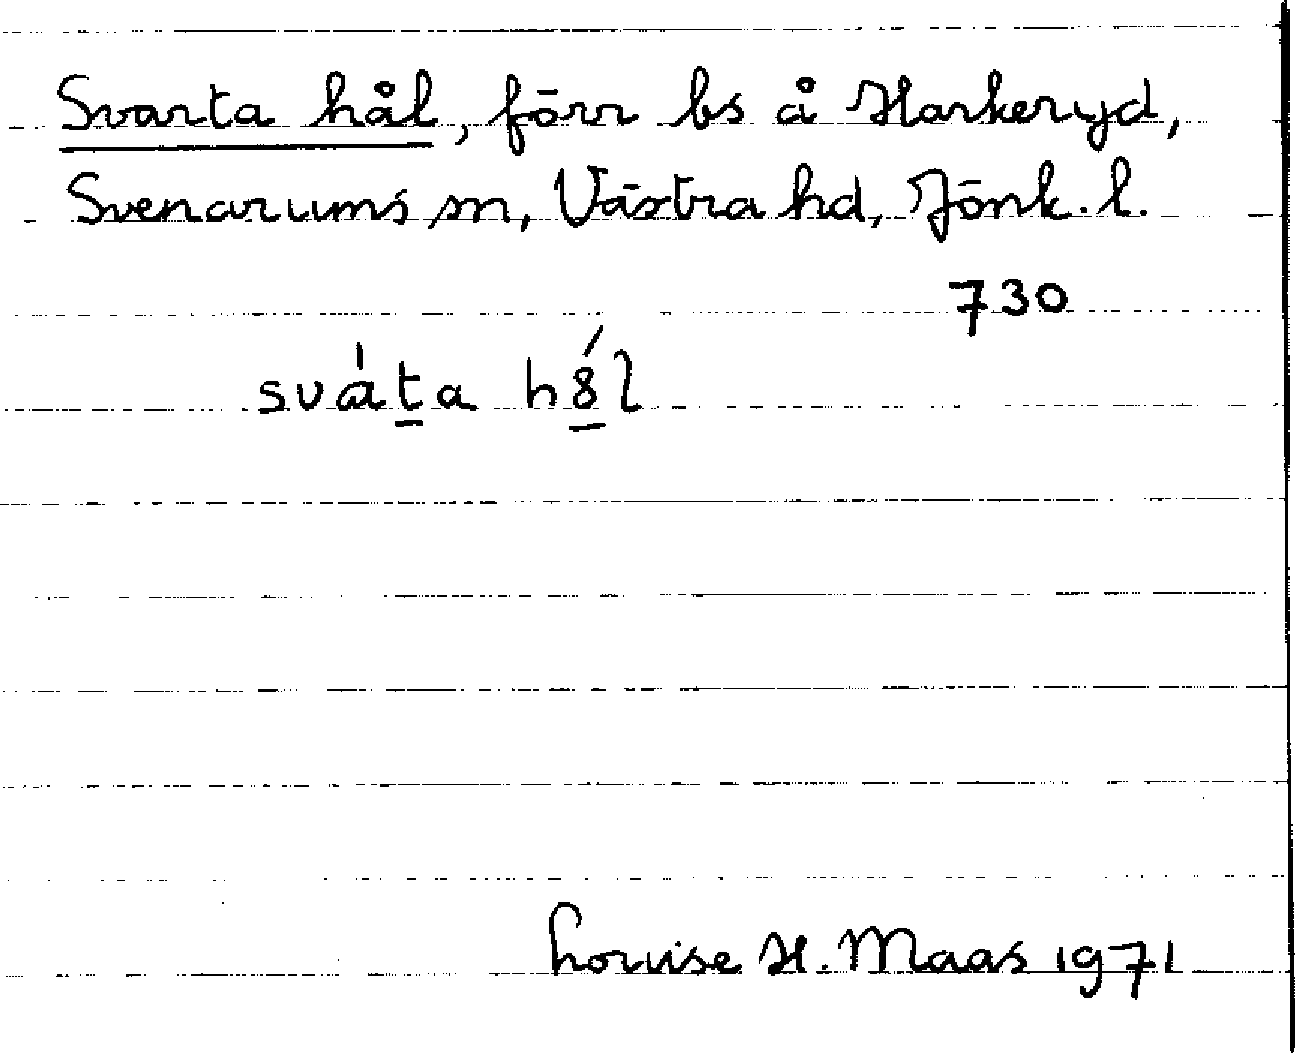 Svarta hål, förr bs å Harkeryd,
Svenarums sn, Västra hd, Jönk. l.
730
Louise H. Maas 1971